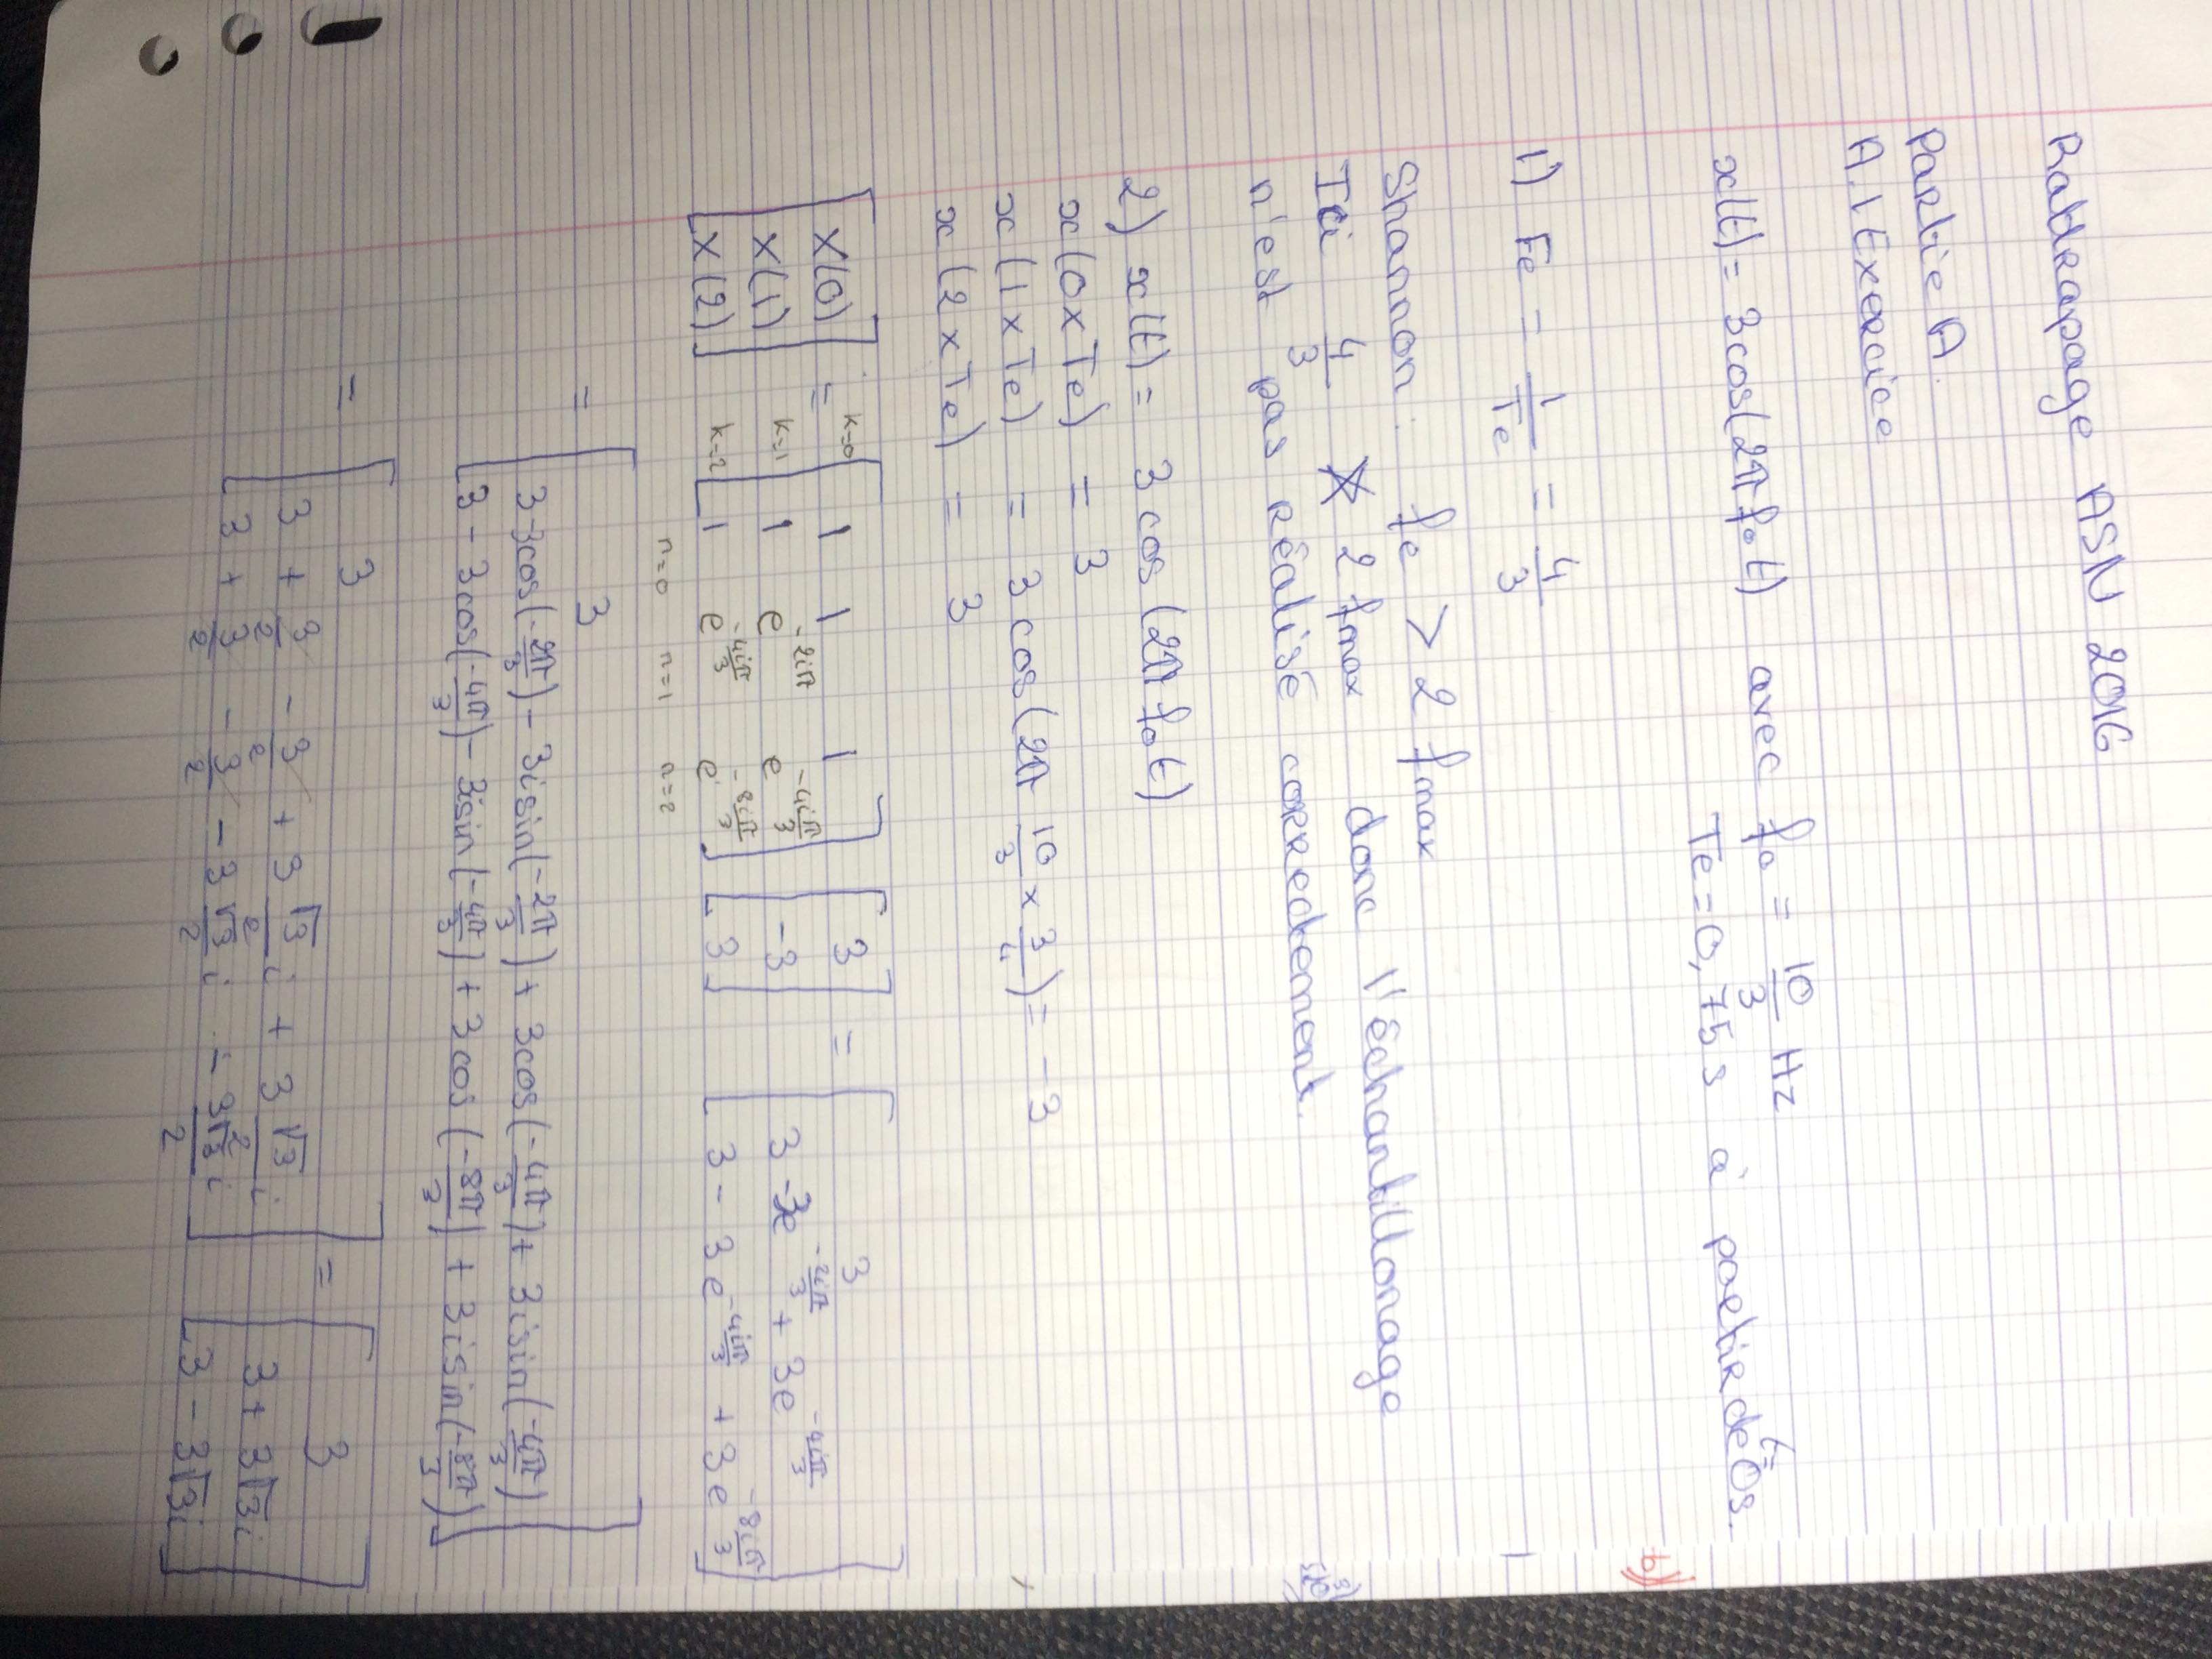 Rattrapage ASN 2016
Partie A.
A.1 Exercice
x(t) = 3cos(2π f₀ t) avec f₀ = 10/3 Hz
Te = 0,75 s à partir de t=0s.
b)
1) Fe = 1/Te = 4/3
Shannon : fe > 2 fmax
Ici 4/3 ≯ 2 fmax donc l'échantillonage
n'est pas réalisé correctement.
2) x(t) = 3 cos(2π f₀ t)
x(0xTe) = 3
x(1xTe) = 3 cos(2π 10/3 x 3/4) = -3
x(2xTe) = 3
[X(0)] = k=0 [1 1 1] [3] = [3]
[X(1)] k=1 [1 e^(-2iπ) e^(-4iπ/3)] [-3] [3 - 3e^(-2iπ/3) + 3e^(-4iπ/3)]
[X(2)] k=2 [1 e^(-4iπ/3) e^(-8iπ/3)] [3] [3 - 3e^(-4iπ/3) + 3e^(-8iπ/3)]
n=0 n=1 n=2
= [3]
[3-3cos(-2π/3) - 3isin(-2π/3) + 3cos(-4π/3) + 3isin(-4π/3)]
[3 - 3cos(-4π/3) - 3isin(-4π/3) + 3cos(-8π/3) + 3isin(-8π/3)]
= [3] = [3]
[3 + 3/2 - 3/2 + 3 √3/2 i + 3 √3/2 i] [3 + 3√3i]
[3 + 3/2 - 3/2 - 3 √3/2 i - 3√3/2 i] [3 - 3√3i]